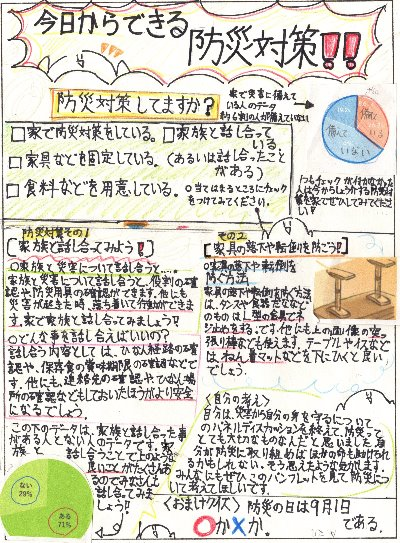 今日からできる
防災対策!!
防災対策してますか?
家で災害に備えて
いる人のデータ
約6割の人が備えていない
備えて
いる
備えて
いない
□家で防災対策をしている。
□家族と話し合って
いる。
(あるいは話し合ったこと
がある)
□家具などを固定している。
□食料などを用意している。
○当てはまるところにチェック
をつけてみてください。
防災対策その1
[家族と話し合ってみよう!]
○家族と災害について話し合うと…。
家族と災害について話し合うと、役割の確
認や、防災用具の確認ができます。他にも
災害が起きた時、落ち着いて行動ができま
す。家で家族と話し合ってみましょう?
○どんな事を話し合えばいいの?
話し合う内容としては、ひなん経路の確認
や、保存食の賞味期限の確認などで
す。他にも、連絡先の確認やひなん場
所の確認などもしておいたほうがより安全
になるでしょう。
この下のデータは、家族と話し合った事
がある人とない人のデータです。家
族と話し合うことで上のような
良いことがたくさんある
のでみなさんも
話し合ってみま
しょう!
ない
29%
ある
71%
その2
[家具の落下や転倒を防ごう!]
○家具の落下や転倒を
防ぐ方法
家具の落下や転倒を防ぐ方法
は、タンスや食器だなな
のものはL型の金具でネ
ジ止めをする。です。他にも上の画像の突っ
張り棒なども使えます。テーブルやイスなど
は、ねん着マットなどを下にひくと良い
でしょう。
〈自分の考え〉
自分は、災害から自分の身を守るについて
のパネルディスカッションを終えて、防災って
とても大切なものなんだと思いました。自
分が防災に取り組めばほかの命も助けられ
るかもしれない。そう思えたような気がします。
みんなにもぜひこのパンフレットを見て防災につ
いて考えてほしいです。
〈おまけクイズ〉
防災の日は9月1
である。
○か×か。